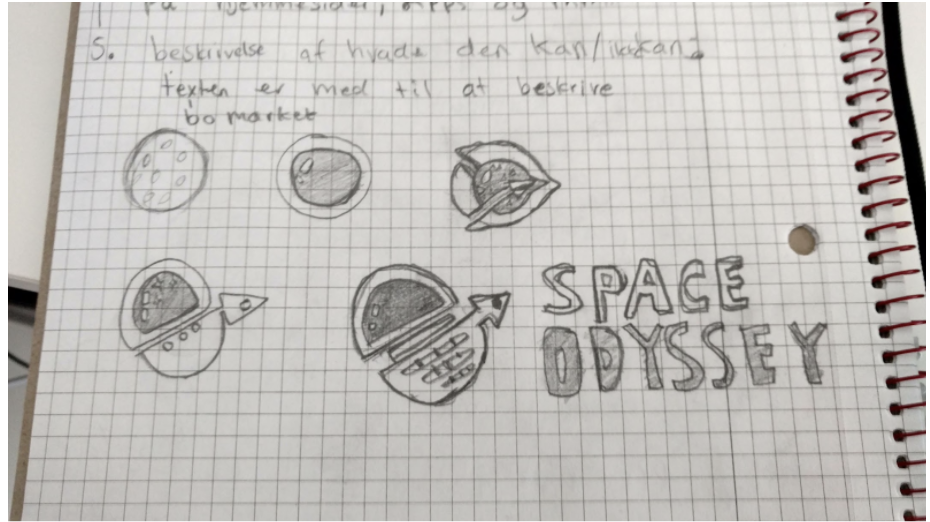 på hjemmesider, apps og
5. beskrivelse af hvade den kan/ikkkan?
texten er med til at beskrive
bo market
SPACE
ODYSSEY